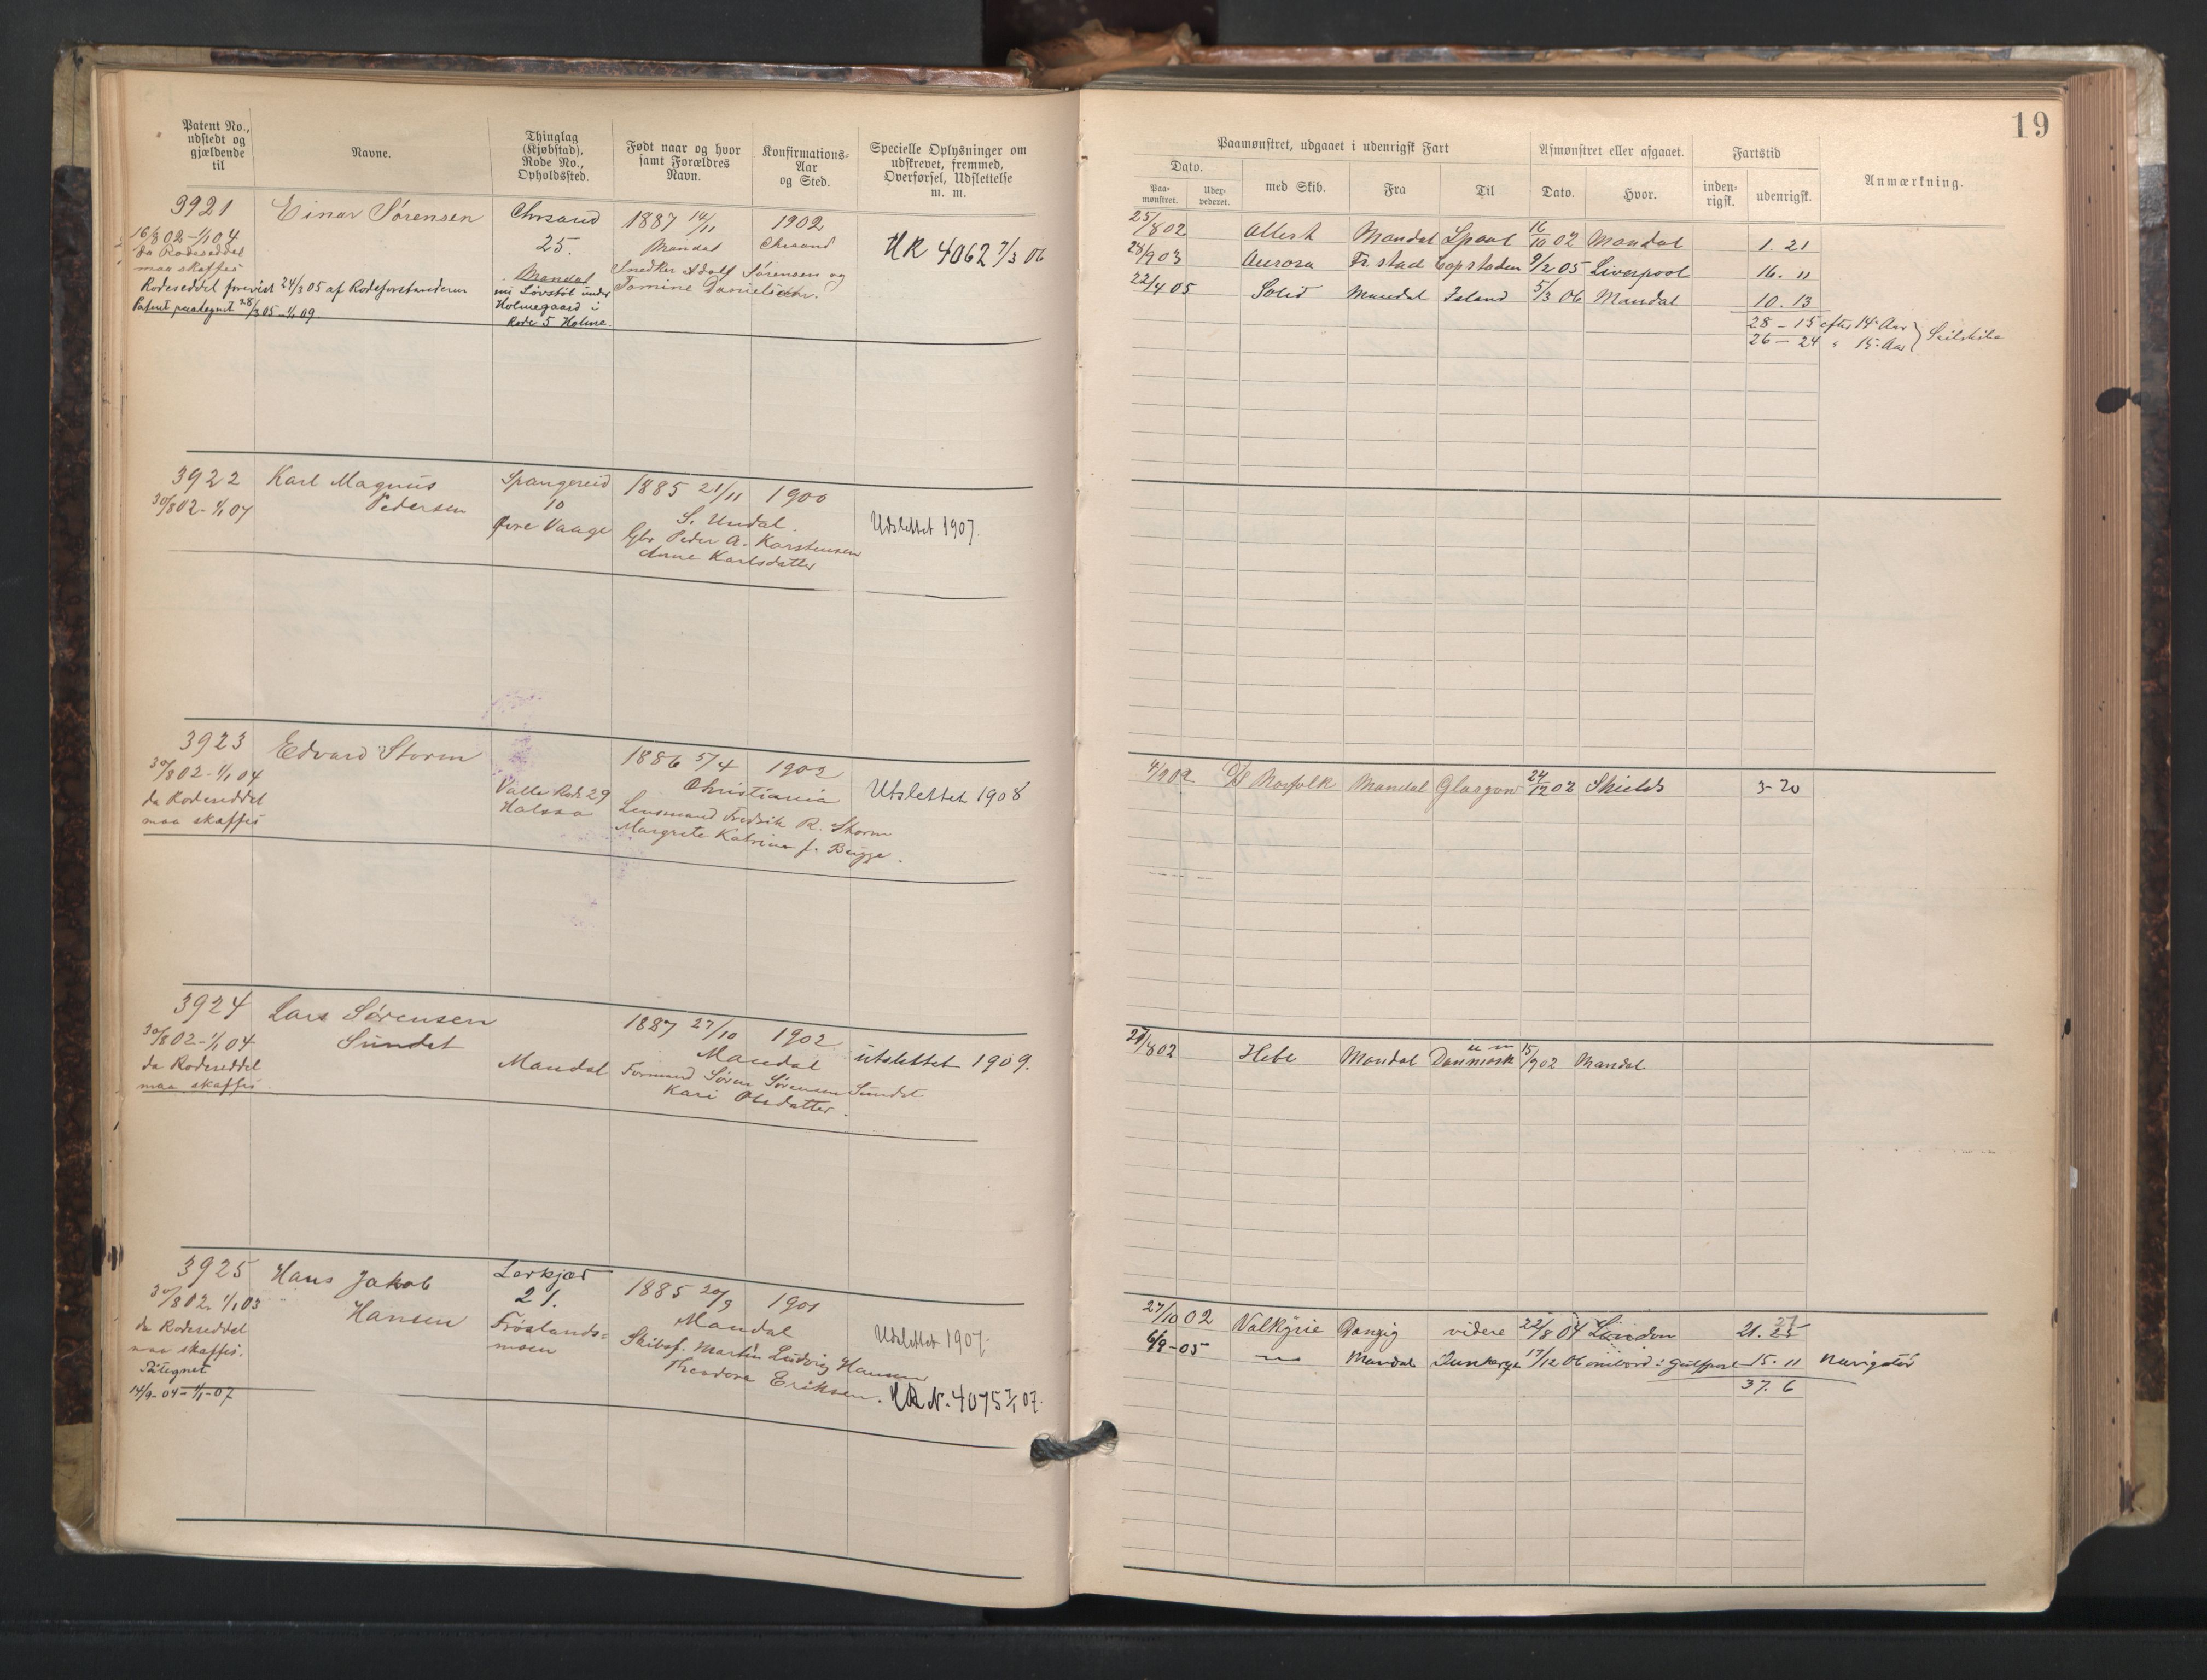 19
Patent No., udstedt og gjældende til
Navne.
Thinglag (Kjøbstad), Rode No., Opholdssted.
Født naar og hvor samt Forældres Navn.
Konfirmations-Aar og Sted.
Specielle Oplysninger om udskrevet, fremmed, Overførsel, Udslettelse m. m.
Paamønstret, udgaaet i udenrigsk Fart
Dato.
Paa-mønstret.
med Skib.
Fra
Til
Afmønstret eller afgaaet.
Dato.
Hvor.
Fartstid
inden-rigsk.
udenrigsk.
Anmærkning.
3921
Einar Sørensen
Chrsand
1887 14/11
1902
16/8 02 - 1/1 04
25.
Mandal
Chrsand
HR 4062 7/3 06
da Rodeseddel
maa skaffes
Mandal
Snedker Adolf Sørensen og
Rodeseddel forevist 24/3 05 af Rodeforstanderen
Tomine Danielsdtr.
Holmegaard i
Patent paategnet 28/3 05 - 1/1 09.
Rode 5 Holme.
25/8 02 Allert Mandal 16/10 02 Mandal 1. 21
28/9 03 Aurora Fr.stad Copstaden 9/2 05 Liverpool 16. 11
22/4 05 Solid Mandal Island 5/3 06 Mandal 10. 13
28 - 15 efter 14 Aar
26 - 24 " 15 Aar
3922
Karl Magnus
Spangereid
1885 21/11
1900
30/8 02 - 1/1 04
Pedersen
10
S. Undal.
Øvre Vaage
Udslettet 1907.
Gbr Peder A. Karstensen
Anne Karlsdatter
3923
Edvard Storm
1886 5/4
1902
30/8 02 - 1/1 04
Christiania
Utslettet 1908
da Rodeseddel
Valle Rode 29
maa skaffes
Halsaa
Lensmand Fredrik R. Storm
Margrete Katrine f. Bugge.
4/9 02 D/S Norfolk Mandal Glasgow 24/12 02 Shields 3-20
3924
Lars Sørensen
1887 27/10
1902
30/8 02 - 1/1 04
Sundet
Mandal
utslettet 1909.
da Rodeseddel
Mandal
Formand Søren Sørensen Sundet
maa skaffes
Kari Olsdatter.
27/8 02 Hebe Mandal Danmark 15/9 02 Mandal
3925
Hans Jakob
Lerkjær
1885 20/9
1901
30/8 02. 1/1 03
Hansen
21.
Mandal
da Rodeseddel
Frøslands=
Udslettet 1907.
maa skaffes.
moen
Skibsf. Martin Ludvig Hansen
Paategnet
Theodora Eriksen.
HR N. 4075 7/1 07.
14/9 - 04 - 1/1 - 07
27/10 02 Valkyrie Danzig videre 22/8 04 London 21. 25
27
6/9 - 05 Mandal Dunkerque 17/12 06 ombord i Gulfport 15. 11 Navigatør
37. 6